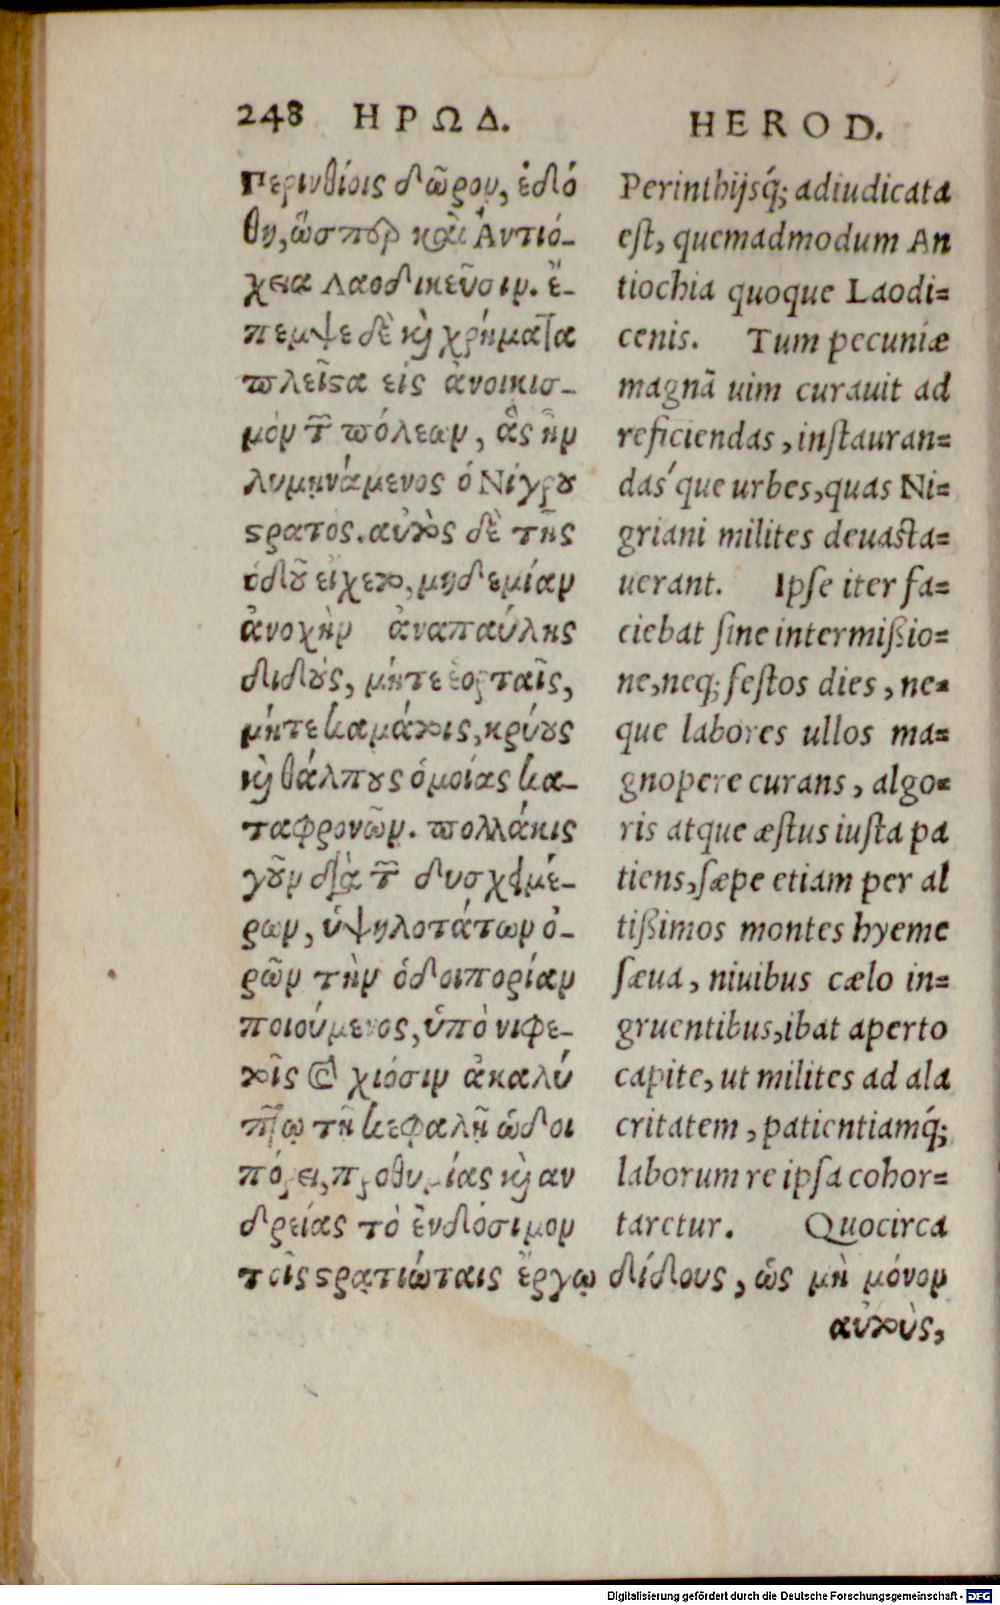 248 ΗΡΩΔ.
Περινθίοις δῶρον, ἐδό
θη, ὥσπερ καὶ Ἀντιό-
χεια Λαοδικεῦσιν. ἔ-
πεμψε δὲ καὶ χρήματα
πλεῖστα εἰς ἀνοικισ-
μὸν τῶν πόλεων, ἃς ἦν
λυμηνάμενος ὁ Νίγρου
στρατός. αὐτὸς δὲ τῆς
ὁδοῦ εἴχετο, μηδεμίαν
ἀνοχὴν ἀναπαύλης
διδούς, μήτε ἑορταῖς,
μήτε καμάτοις, κρύους
καὶ θάλπους ὁμοίας κα-
ταφρονῶν. πολλάκις
γοῦν διὰ τῶν δυσχειμέ-
ρων, ὑψηλοτάτων ὀ-
ρῶν τὴν ὁδοιπορίαν
ποιούμενος, ὑπὸ νιφε-
τοῖς καὶ χιόσιν ἀκαλύ
πτῳ τῇ κεφαλῇ ὡδοι
πόρει, προθυμίας καὶ αν
δρείας τὸ ἐνδόσιμον
τοῖς στρατιώταις ἔργῳ διδους, ὡς μὴ μόνον
αὐτοὺς,
HEROD.
Perinthijsq́; adiudicata
est, quemadmodum An
tiochia quoque Laodi=
cenis. Tum pecuniæ
magnā uim curauit ad
reficiendas, instauran=
das´que urbes, quas Ni=
griani milites deuasta=
uerant. Ipse iter fa=
ciebat sine intermißio=
ne, neq; festos dies, ne=
que labores ullos ma=
gnopere curans, algo=
ris atque æstus iusta pa
tiens, sæpe etiam per al
tißimos montes hyeme
sæua, niuibus cælo in=
gruentibus, ibat aperto
capite, ut milites ad ala
critatem, patientiamq́;
laborum re ipsa cohor=
taretur. Quocirca
Digitalisierung gefördert durch die Deutsche Forschungsgemeinschaft - DFG